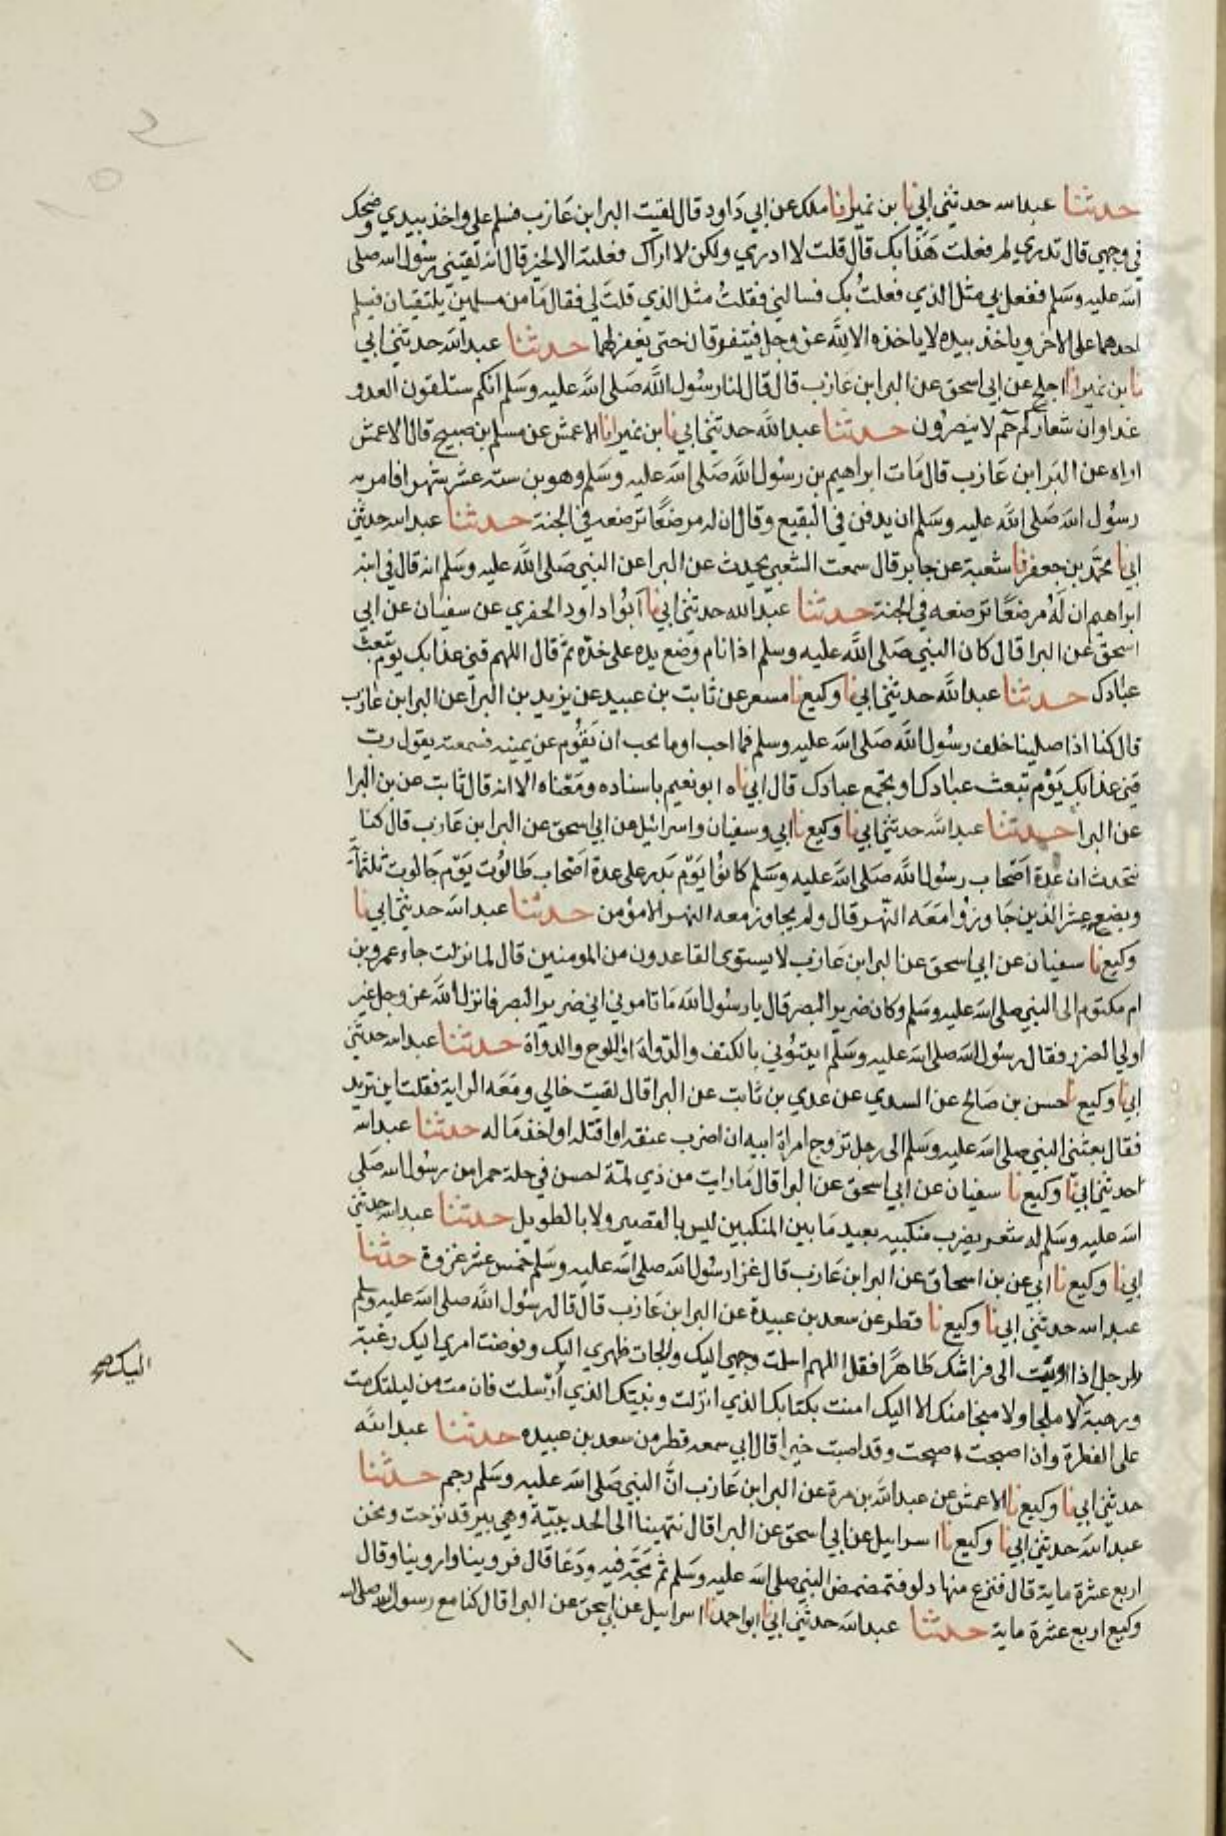 حدثنا عبدالله حدثني ابي نا بن نمير انا ملك عن ابي داود قال لقيت البرا ابن عازب فسلم علي واخذ بيدي وضحك
في وجهي قال تدري لم فعلت هذا بك قال قلت لا ادري ولكن لا اراك فعلته الا لخير قال انه لقيني رسول الله صلى
الله عليه وسلم ففعل بي مثل الذي فعلت بك فسالني فقلت مثل الذي قلت لي فقال ما من مسلمين يلتقيان فيسلم
احدهما على الاخر وياخذ بيده لا ياخذه الا لله عز وجل فيتفرقان حتى يغفر لهما حدثنا عبدالله حدثني ابي
نا بن نمير انا اجلح عن ابي اسحق عن البرا ابن عازب قال قال لنا رسول الله صلى الله عليه وسلم انكم ستلقون العدو
غدا وان شعاركم حم لا ينصرون حدثنا عبدالله حدثني ابي نا بن نمير انا الاعمش عن مسلم بن صبيح قال الاعمش
اراه عن البرا ابن عازب قال مات ابراهيم بن رسول الله صلى الله عليه وسلم وهو بن ستة عشر شهرا فامر به
رسول الله صلى الله عليه وسلم ان يدفن في البقيع وقال ان له مرضعا ترضعه في الجنة حدثنا عبدالله حدثني
ابي نا محمد بن جعفر نا شعبة عن جابر قال سمعت الشعبي يحدث عن البرا عن النبي صلى الله عليه وسلم انه قال في ابنه
ابراهيم ان له مرضعا ترضعه في الجنة حدثنا عبدالله حدثني ابي نا ابوا داود الحفري عن سفيان عن ابي
اسحق عن البرا قال كان النبي صلى الله عليه وسلم اذا نام وضع يده على خده ثم قال اللهم قني عذابك يوم تبعث
عبادك حدثنا عبدالله حدثني ابي نا وكيع نا مسعر عن ثابت بن عبيد عن يزيد بن البرا عن البرا ابن عازب
قال كنا اذا صلينا خلف رسول الله صلى الله عليه وسلم مما احب او ما يحب ان يقوم عن يمينه فسمعته يقول رب
قني عذابك يوم تبعث عبادك او تجمع عبادك قال ابي نا ه ابو نعيم باسناده ومعناه الا انه قال ثابت عن بن البرا
عن البرا حدثنا عبدالله حدثني ابي نا وكيع نا ابي وسفيان واسرائيل عن ابي اسحق عن البرا ابن عازب قال كنا
نتحدث ان عدة اصحاب رسول الله صلى الله عليه وسلم كانوا يوم بدر على عدة اصحاب طالوت يوم جالوت ثلثمائة
وبضع عشر الذين جاوزوا معه النهر قال ولم يجاوز معه النهر الا مؤمن حدثنا عبدالله حدثني ابي نا
وكيع نا سفيان عن ابي اسحق عن البرا ابن عازب لا يستوى القاعدون من المومنين قال لما نزلت جاء عمرو بن
ام مكتوم الى النبي صلى الله عليه وسلم وكان ضرير البصر قال يا رسول الله ما تامرني اني ضرير البصر فانزل الله عز وجل غير
اولي الضرر فقال رسول الله صلى الله عليه وسلم ايتوني بالكتف والدواة او اللوح والدواة حدثنا عبدالله حدثني
ابي نا وكيع نا حسن بن صالح عن السدي عن عدي بن ثابت عن البرا قال لقيت خالي ومعه الراية فقلت اين تريد
فقال بعثني النبي صلى الله عليه وسلم الى رجل تزوج امراة ابيه ان اضرب عنقه او اقتله او اخذ ماله حدثنا عبدالله
حدثني ابي نا وكيع نا سفيان عن ابي اسحق عن البرا قال ما رايت من ذي لمة احسن في حلة حمرا من رسول الله صلى
الله عليه وسلم له شعر يضرب منكبيه بعيد ما بين المنكبين ليس بالقصير ولا بالطويل حدثنا عبدالله حدثني
ابي نا وكيع نا ابي عن بن اسحاق عن البرا ابن عازب قال غزا رسول الله صلى الله عليه وسلم خمس عشر غزوة حدثنا
عبدالله حدثني ابي نا وكيع نا قطر عن سعد بن عبيدة عن البرا ابن عازب قال قال رسول الله صلى الله عليه وسلم
لرجل اذا اويت الى فراشك طاهرا فقل اللهم اسلمت وجهي اليك والجات ظهري اليك وفوضت امري اليك رغبة
ورهبة لا ملجا ولا منجا منك الا اليك امنت بكتابك الذي انزلت ونبيك الذي ارسلت فان مت من ليلتك مت
على الفطرة وان اصبحت اصبحت وقد اصبت خيرا قال ابي سمعه قطر من سعد بن عبيده حدثنا عبدالله
حدثني ابي نا وكيع نا الاعمش عن عبدالله بن مرة عن البرا ابن عازب ان النبي صلى الله عليه وسلم رجم حدثنا
عبدالله حدثني ابي نا وكيع نا اسراييل عن ابي اسحق عن البرا قال نتهينا الى الحديبية وهي بير قد نزحت ونحن
اربع عشرة ماية قال فنزع منها دلو فتمضمض النبي صلى الله عليه وسلم ثم مجه فيه ودعا قال فروينا واروينا وقال
وكيع اربع عشرة ماية حدثنا عبدالله حدثني ابي نا ابو احمد نا اسراييل عن ابي اسحق عن البرا قال كنا مع رسول الله صلى الله
اليك صح